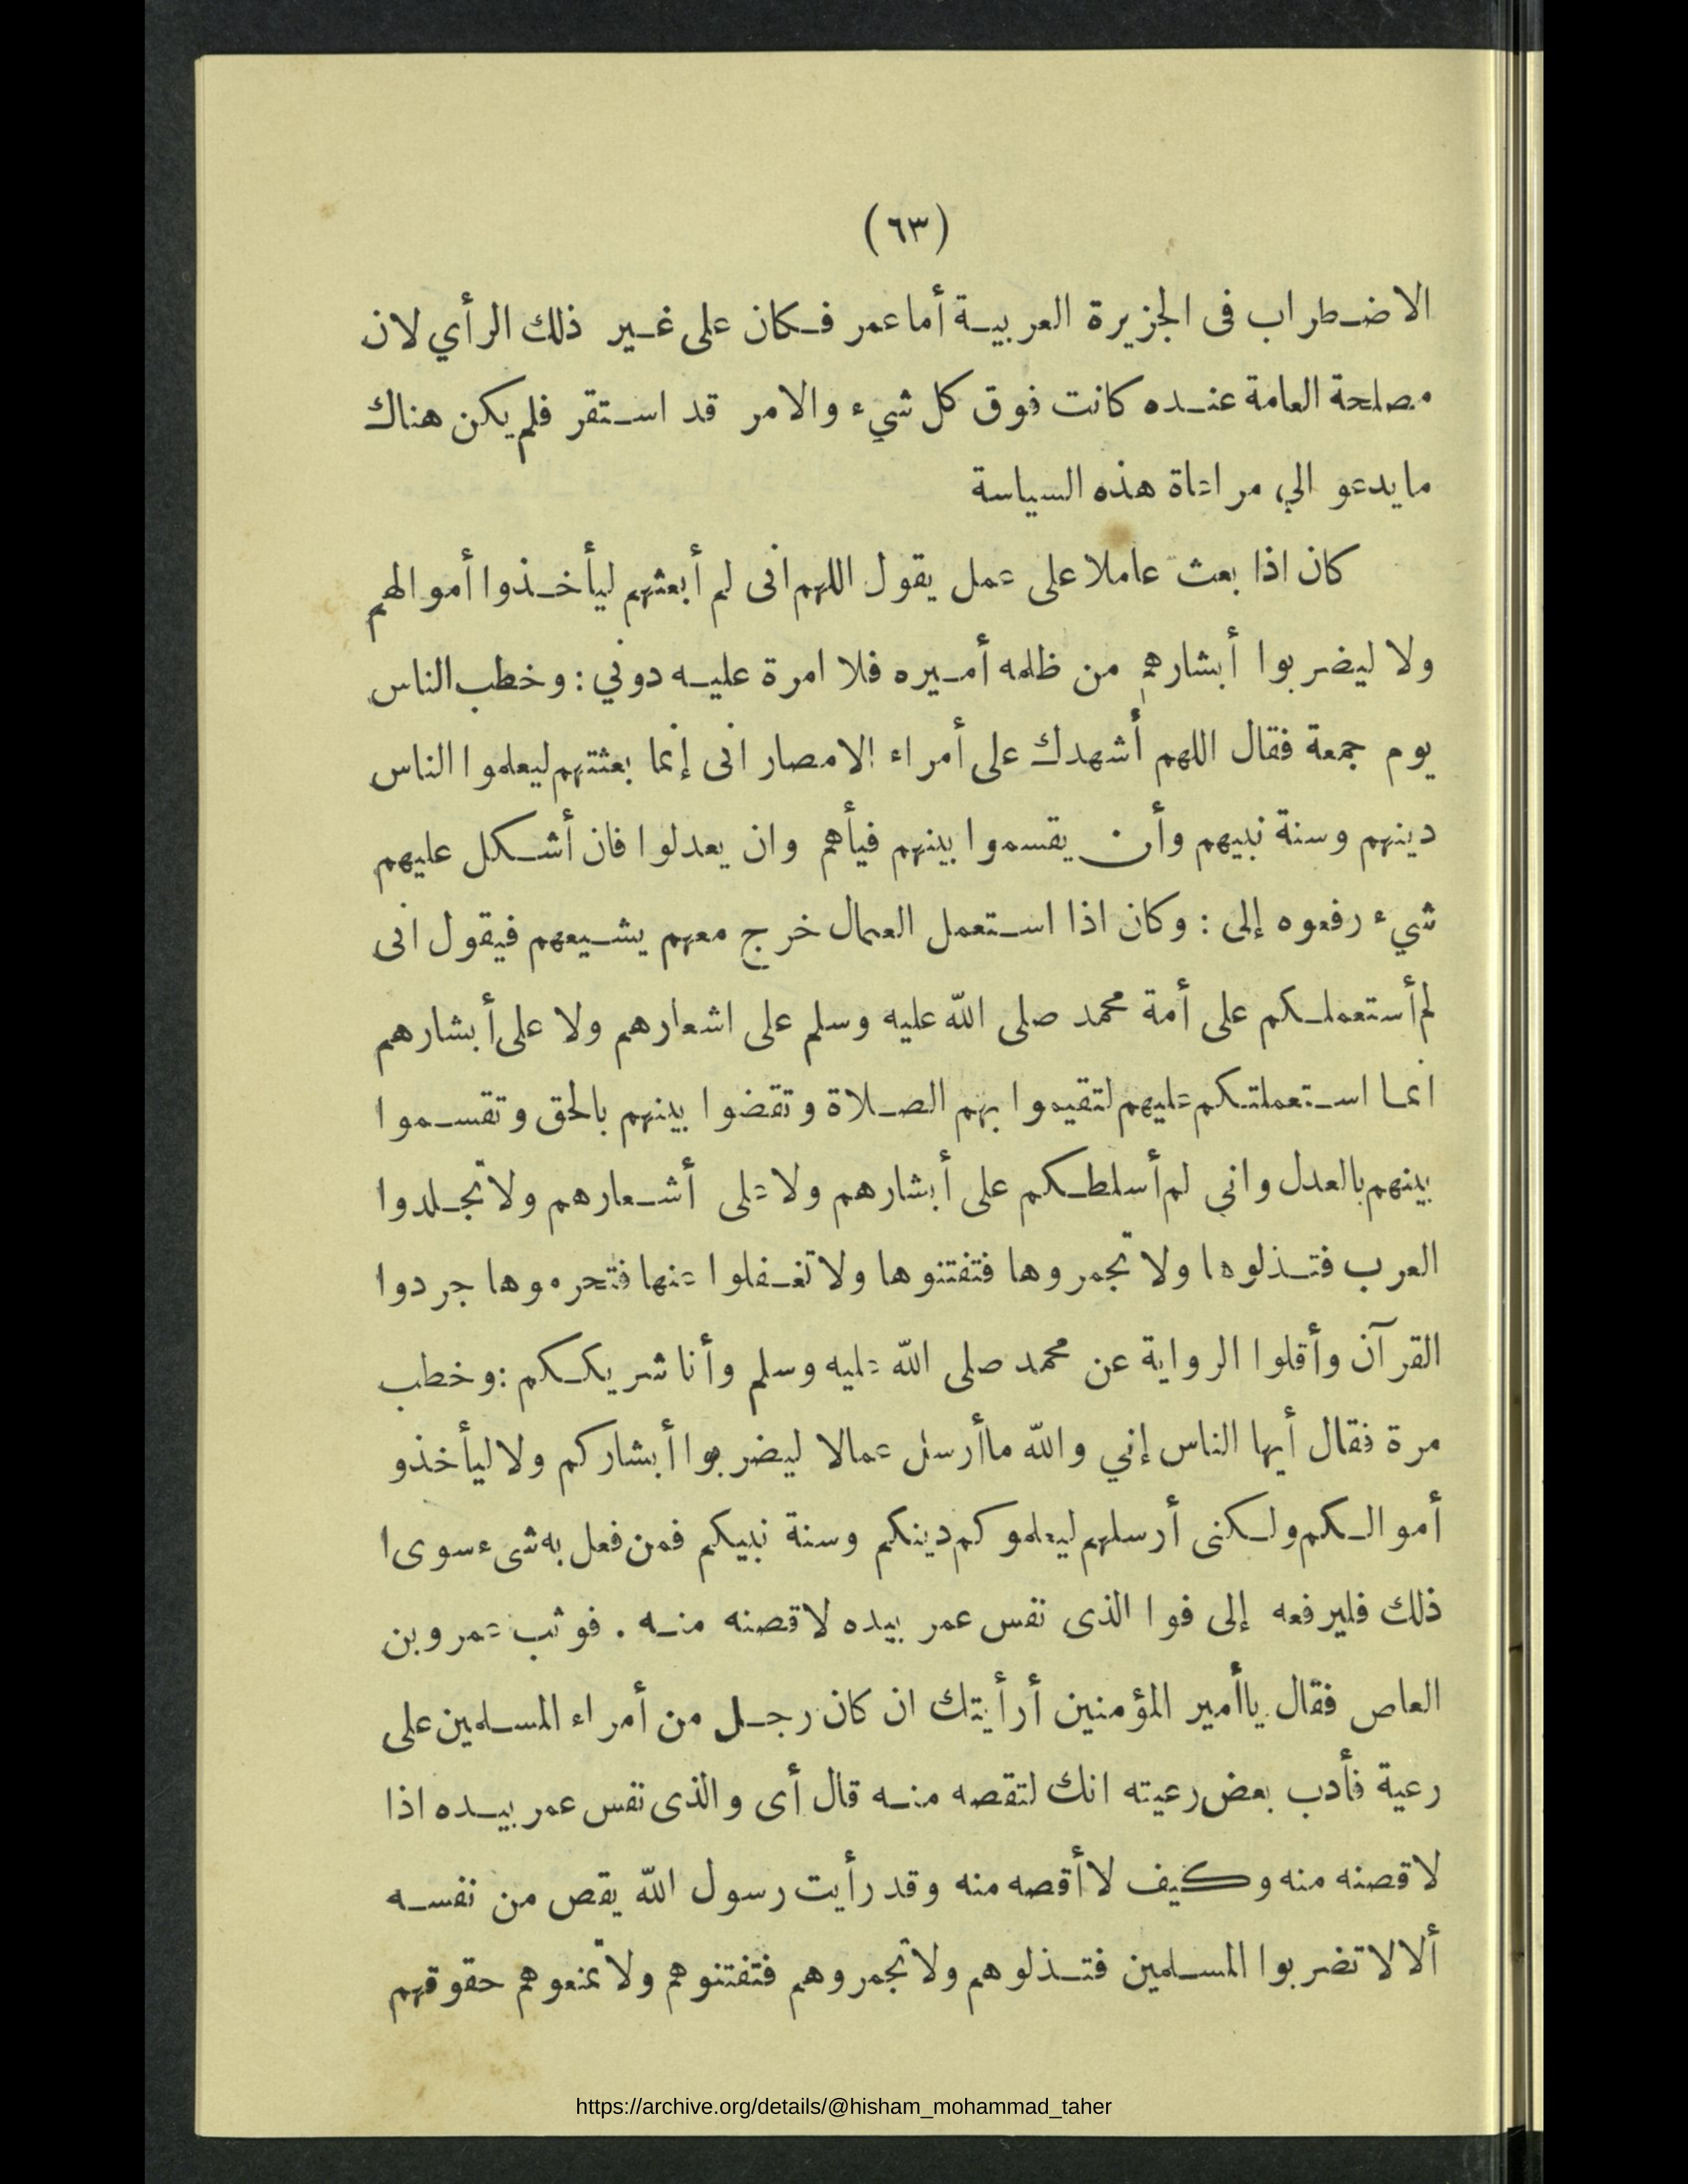 (٦٣)
الاضطراب فى الجزيرة العربية أما عمر فكان على غير ذلك الرأي لان
مصلحة العامة عنده كانت فوق كل شيء والامر قد استقر فلم يكن هناك
ما يدعو الي مراعاة هذه السياسة
كان اذا بعث عاملا على عمل يقول اللهم انى لم أبعثهم ليأخذوا أموالهم
ولا ليضربوا أبشارهم من ظلمه أميره فلا امرة عليه دوني : وخطب الناس
يوم جمعة فقال اللهم أشهدك على أمراء الامصار انى إنما بعثتهم ليعلموا الناس
دينهم وسنة نبيهم وأن يقسموا بينهم فيأهم وان يعدلوا فان أشكل عليهم
شيء رفعوه إلى : وكان اذا استعمل العمال خرج معهم يشيعهم فيقول انى
لم أستعملكم على أمة محمد صلى الله عليه وسلم على اشعارهم ولا على أبشارهم
انما استعملتكم عليهم لتقيموا بهم الصلاة وتقضوا بينهم بالحق وتقسموا
بينهم بالعدل واني لم أسلطكم على أبشارهم ولا على أشعارهم ولا تجلدوا
العرب فتذلوها ولا تجمروها فتفتنوها ولا تغفلوا عنها فتحرموها جردوا
القرآن وأقلوا الرواية عن محمد صلى الله عليه وسلم وأنا شريككم : وخطب
مرة فقال أيها الناس إني والله ما أرسل عمالا ليضربوا أبشاركم ولا ليأخذو
أموالكم ولكنى أرسلهم ليعلموكم دينكم وسنة نبيكم فمن فعل به شىء سوى ا
ذلك فليرفعه إلى فوا الذى نفس عمر بيده لاقصنه منه . فوثب عمرو بن
العاص فقال يا أمير المؤمنين أرأيتك ان كان رجل من أمراء المسلمين على
رعية فأدب بعض رعيته انك لتقصه منه قال أى والذى نفس عمر بيده اذا
لاقصنه منه وكيف لا أقصه منه وقد رأيت رسول الله يقص من نفسه
ألا لا تضربوا المسلمين فتذلوهم ولا تجمروهم فتفتنوهم ولا تمنعوهم حقوقهم
https://archive.org/details/@hisham_mohammad_taher